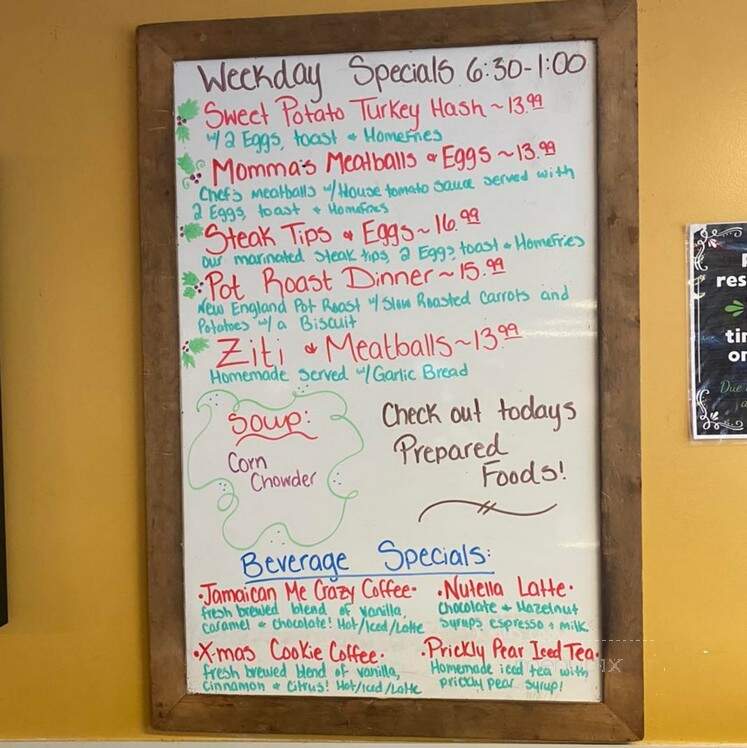 Weekday Specials 6:30-1:00
Sweet Potato Turkey Hash ~ 13.99
w/2 Eggs, toast & Homefries
Momma's Meatballs & Eggs ~ 13.99
Chef's meatballs w/House tomato sauce served with
2 Eggs, toast & Homefries
Steak Tips & Eggs ~ 16.99
our marinated steak tips, 2 Eggs, toast & Homefries
Pot Roast Dinner ~ 15.99
New England Pot Roast w/ Slow Roasted Carrots and
Potatoes w/ a Biscuit
Ziti & Meatballs ~ 13.99
Homemade served w/Garlic Bread
Soup:
Corn
Chowder
Check out todays
Prepared
Foods!
Beverage Specials:
·Jamaican Me Crazy Coffee·
fresh brewed blend of vanilla,
caramel & chocolate! Hot/Iced/Latte
·Nutella Latte·
Chocolate & Hazelnut
syrups espresso & milk
·X-mas Cookie Coffee·
fresh brewed blend of vanilla,
cinnamon & citrus! Hot/Iced/Latte
·Prickly Pear Iced Tea·
Homemade iced tea with
prickly pear syrup!
res
tim
or
Due